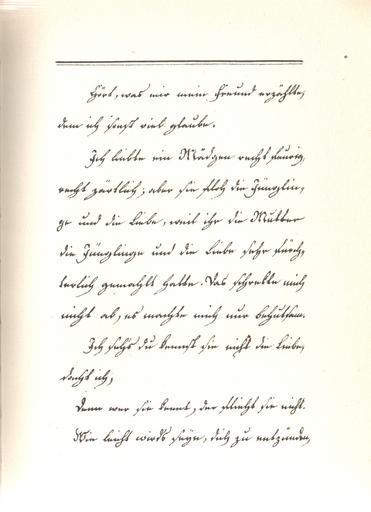 Hört, was mir mein Freund erzählte,
dem ich sonst viel glaube.
Ich liebte ein Mädgen recht feurig,
recht zärtlich; aber sie floh die Jünglin-
ge und die Liebe, weil ihr die Mutter
die Jünglinge und die Liebe sehr fürch-
terlich gemahlt hatte. Das schreckte mich
nicht ab, es machte mich nur behutsam.
Ich sehs du kennst sie nicht die Liebe,
dacht ich,
Denn wer sie kennt, der flieht sie nicht.
Wie leicht wirds seyn, dich zu entzünden,